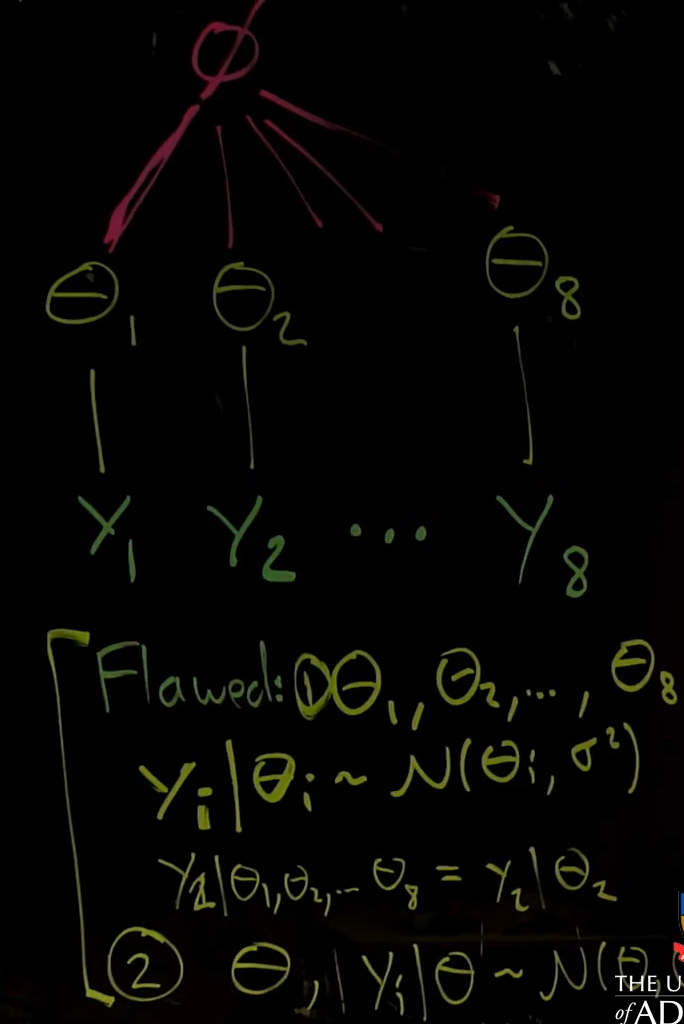 φ
θ₁ θ₂ θ₈
Y₁ Y₂ ... Y₈
Flawed: ① θ₁, θ₂, ..., θ₈
Yᵢ|θᵢ ~ N(θᵢ, σ²)
Y₂|θ₁, θ₂, ... θ₈ = Y₂|θ₂
② θ, | Yᵢ|θ ~ N(θ,
THE U
of AD